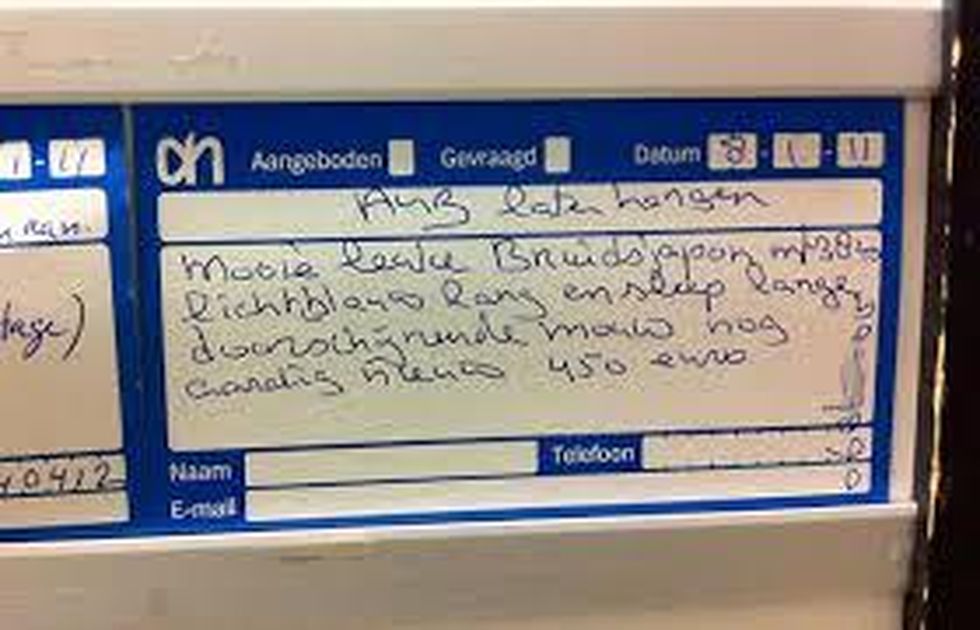 ah Aangeboden Gevraagd Datum 8-1-11
AUB laten hangen
Mooie leuke Bruidsjapon m/38
lichtblauw lang en sleep lange
doorschijnende mouw nog
aardig nieuw 450 euro
Naam Telefoon
E-mail
0412